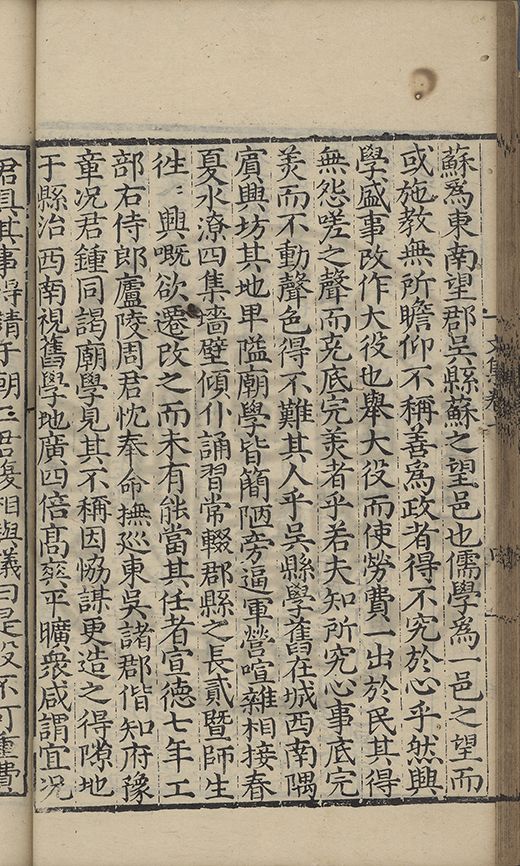 蘇爲東南望郡吳縣蘇之望邑也儒學爲一邑之望而
或施教無所瞻仰不稱善爲政者得不究於心乎然興
學盛事改作大役也舉大役而使勞費一出於民其得
無怨嗟之聲而克底完羙者乎若夫知所究心事底完
羙而不動聲色得不難其人乎吳縣學舊在城西南隅
賓興坊其地卑隘廟學皆簡陋旁逼軍營喧雜相接春
夏水潦四集墻壁傾仆誦習常輟郡縣之長貳暨師生
徃〻興嘅欲遷改之而未有能當其任者宣德七年工
部右侍郎廬陵周君忱奉命撫廵東吳諸郡偕知府豫
章况君鍾同謁廟學見其不稱因恊謀更造之得隙地
于縣治西南視舊學地廣四倍髙爽平曠衆咸謂宜况
君具其事得請于朝二君復相與議曰是役不可重費